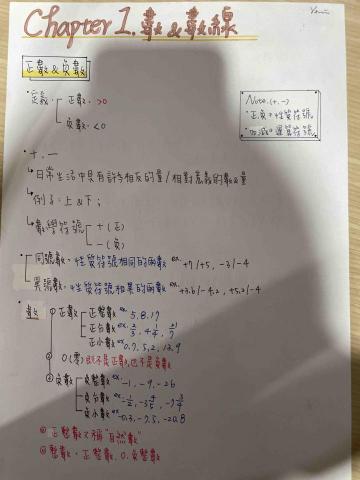 Chapter 1. 數 & 數線
正數 & 負數
Note. (+. -)
"正.負"→性質符號
"加.減"→運算符號
·定義. 正數. >0
負數. <0
· +. -
↳日常生活中具有許多相反的量/相對意義的數&量
↳例子:上&下;
↳數學符號 +(正)
-(負)
同號數→性質符號相同的兩數 ex. +7/+5, -3/-4
異號數→性質符號相異的兩數 ex. +3.6/-4.2,
·數 ①正數 正整數 ex. 5.8.19
正分數 ex.
正小數 ex. 0.9, 5.2, 13.9
② 0(零) 既不是正數,也不是負數
③負數 負整數 ex. -1, -9, -26
負分數 ex.
負小數 ex. -0.3, -9.5, -20.8
◎正整數又稱"自然數"
◎整數→正整數.0.負整數